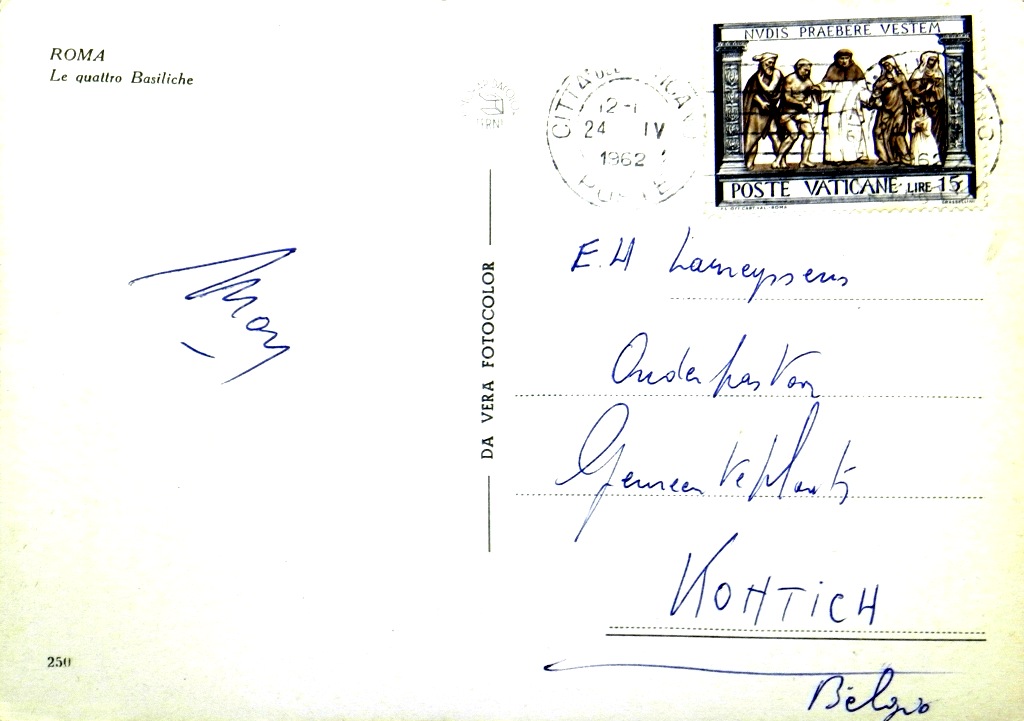 ROMA
Le quattro Basiliche
NVDIS PRAEBERE VESTEM
CITTÀ DEL VATICANO
12-1
24 IV
1962
POSTE
POSTE VATICANE LIRE 15
DA VERA FOTOCOLOR
E.H Laureyssens
Onderpastoor
Gemeenteplaats
KOHTICH
België
250